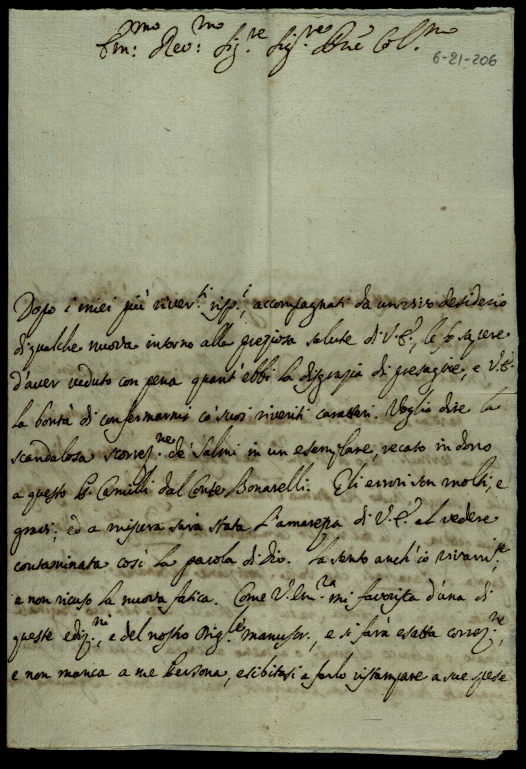 Em:mo Rev:mo Sig.re Sig.re Pñe Col.mo
6-21-206
Dopo i miei più river.ti risp.i, accompagnati da un vivo desiderio
di qualche nuova intorno alla preziosa salute di V.E., le fo sapere
d'aver veduto con pena quant'ebbi la disgrazia di presagire, e V.E.
la bontà di confermarmi co' suoi riveriti caratteri. Voglio dire la
scandalosa scorrez.ne de' Salmi in un esemplare, recato in dono
a questo P. Camilli dal Conte Bonarelli. Gli errori son molti, e
gravi; ed a misura sarà stata l'amarezza di V.E. al vedere
contaminata così la parola di Dio. La sento anch'io vivam.te;
e non ricuso la nuova fatica. Come V. Em.za mi favorisca d'una di
queste ediz.ni, e del nostro orig.le manuscr., e si farà esatta correz.ne,
e non manca a me Persona, esibitasi a farlo ristampare a sue spese